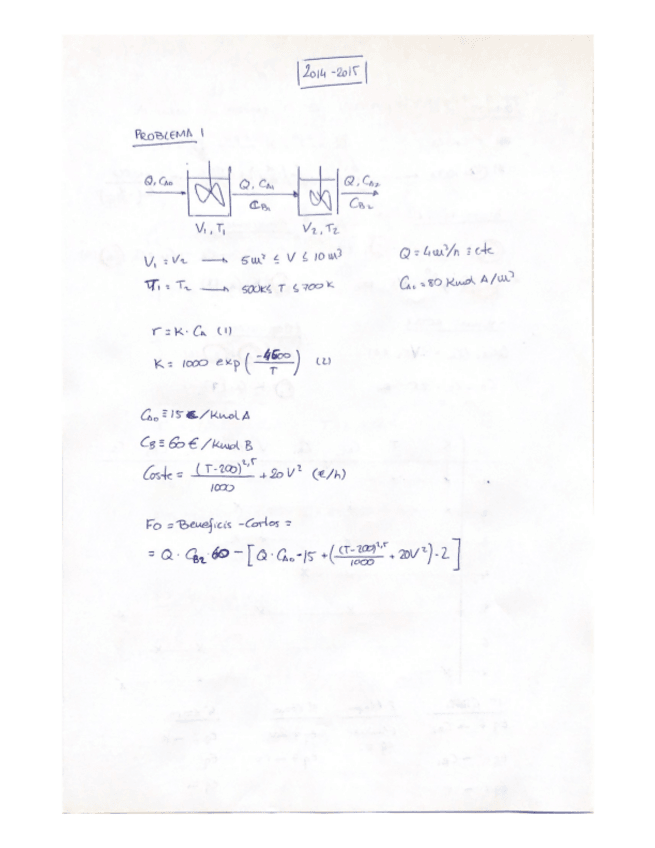 2014-2015
PROBLEMA 1
Q, CA0 Q, CA1 Q, CA2
CB1 CB2
V1, T1 V2, T2
V1 = V2 → 5m³ ≤ V ≤ 10m³ Q = 4m³/h ≡ cte
T1 = T2 → 500K ≤ T ≤ 700K CA0 = 80 Kmol A/m³
r = K · CA (1)
K = 1000 exp(-4500/T) (2)
CA0 ≡ 15 €/Kmol A
CB ≡ 60 €/Kmol B
Coste = (T-200)^2,5/1000 + 20V² (€/h)
FO = Beneficis - Costos =
= Q · CB2 · 60 - [Q · CA0 · 15 + ((T-200)^2,5/1000 + 20V²) · 2]